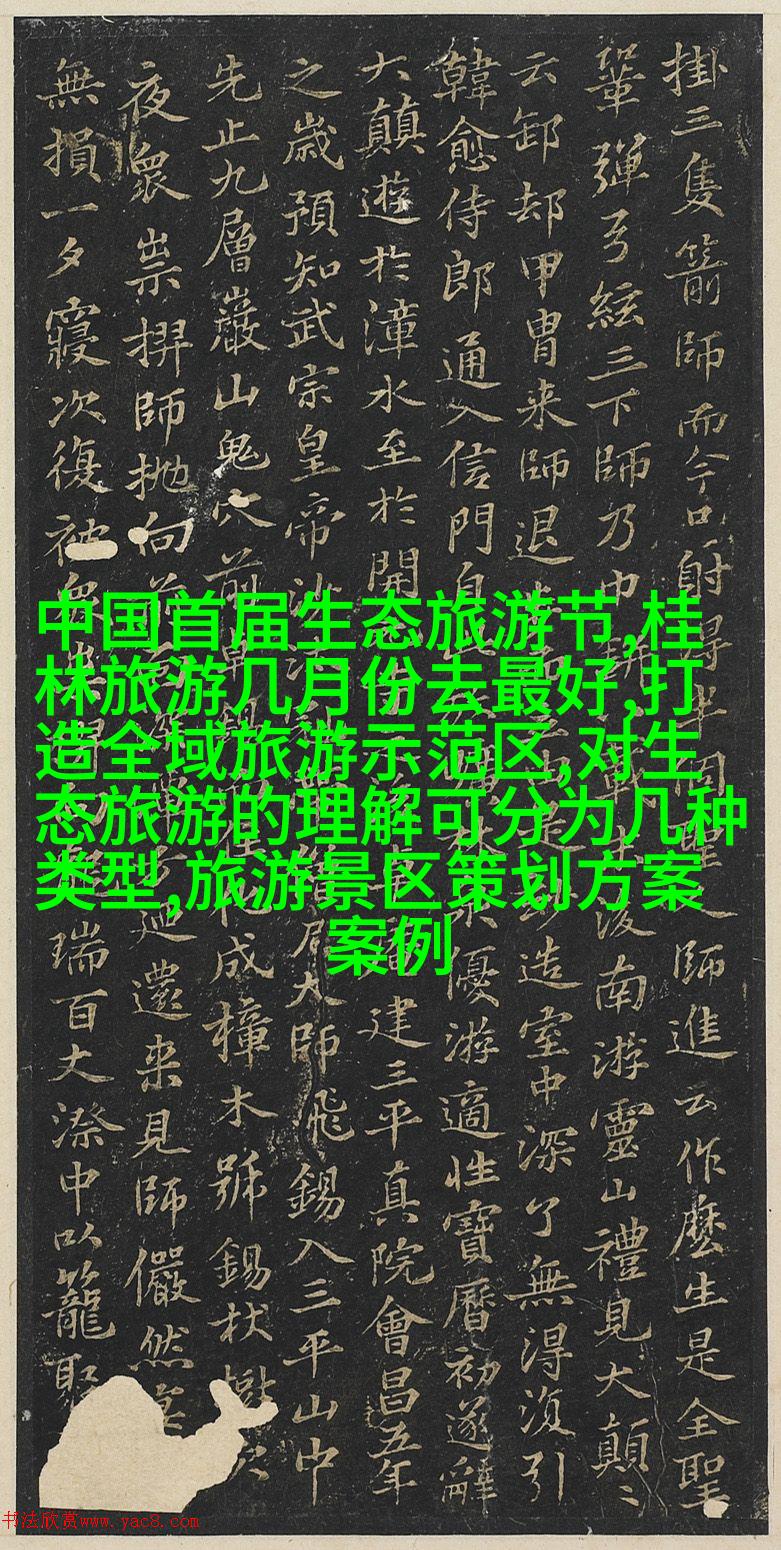 掛三隻箭師而今只射得半個師進云作麼生是全聖
鞏彈弓絃三下師乃中後南游靈山禮見大顛〻
云卸却甲冑来師退造室中深了無淂湏引
韓愈侍郎通入信門自優游適性寶曆初遂辭
大顛遊於漳水至於開建三平真院會昌五年
之歳預知武宗皇帝沙汰大師飛錫入三平山中
先止九層巖山鬼穴前成樟木號錫杖
夜衆祟捋師抛向迴還来見師儼然
無損一夕寢次復被衆瑞百丈漈中以籠聚
中国首届生态旅游节,桂
林旅游几月份去最好,打
造全域旅游示范区,对生
态旅游的理解可分为几种
类型,旅游景区策划方案
案例
书法欣赏www.yac8.com